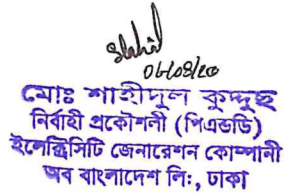 মোঃ শাহীদুল কুদ্দুছ
নির্বাহী প্রকৌশলী (পিএন্ডডি)
ইলেক্ট্রিসিটি জেনারেশন কোম্পানী
অব বাংলাদেশ লি:, ঢাকা